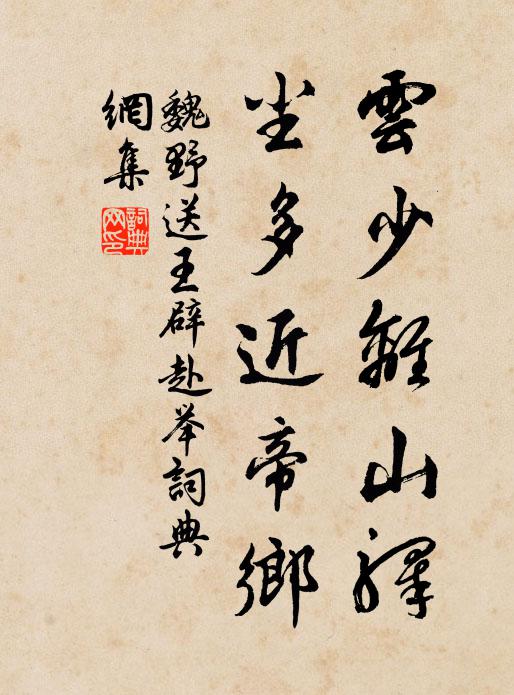 雲少離山驛
尘多近帝鄉
魏野送王辟赴举詞典
網集
詞典
网印